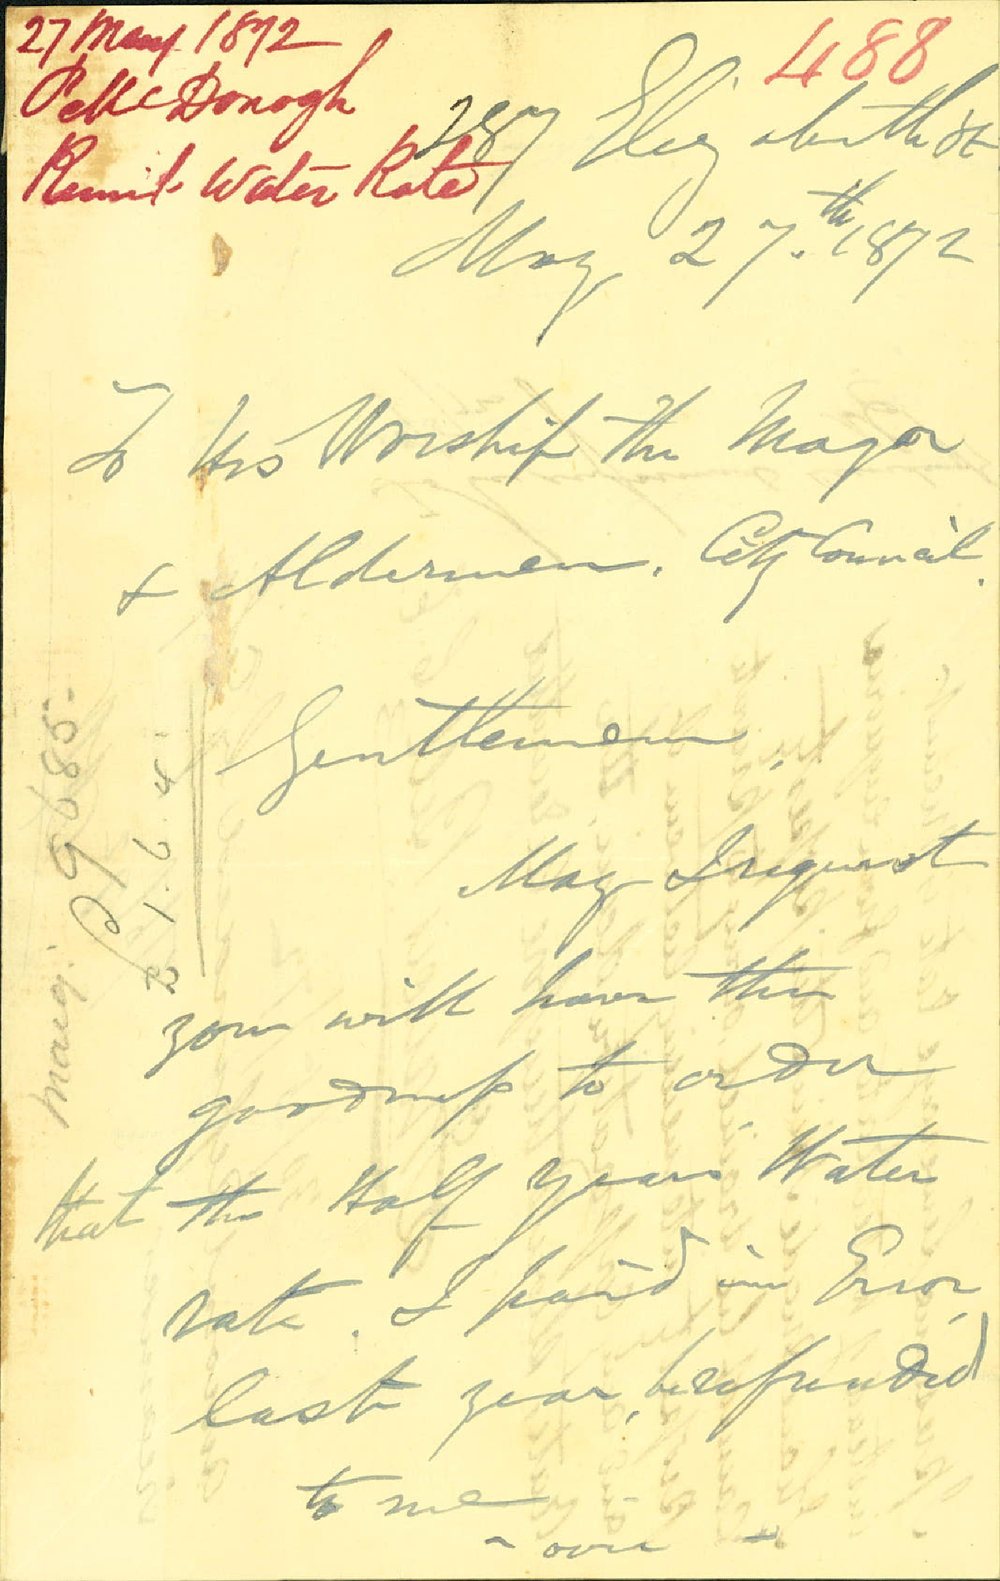 27 May 1872
P McDonogh
Remit Water Rate
488
287 Elizabeth St
May 27.th 1872
To His Worship the Mayor
& Aldermen. City Council.
Gentlemen,
May I request
you will have the
goodness to order
that the Half years Water
rate. I paid in Error,
last year, be refunded
to me
- over -
P 9685.
2 1. 6. 4.